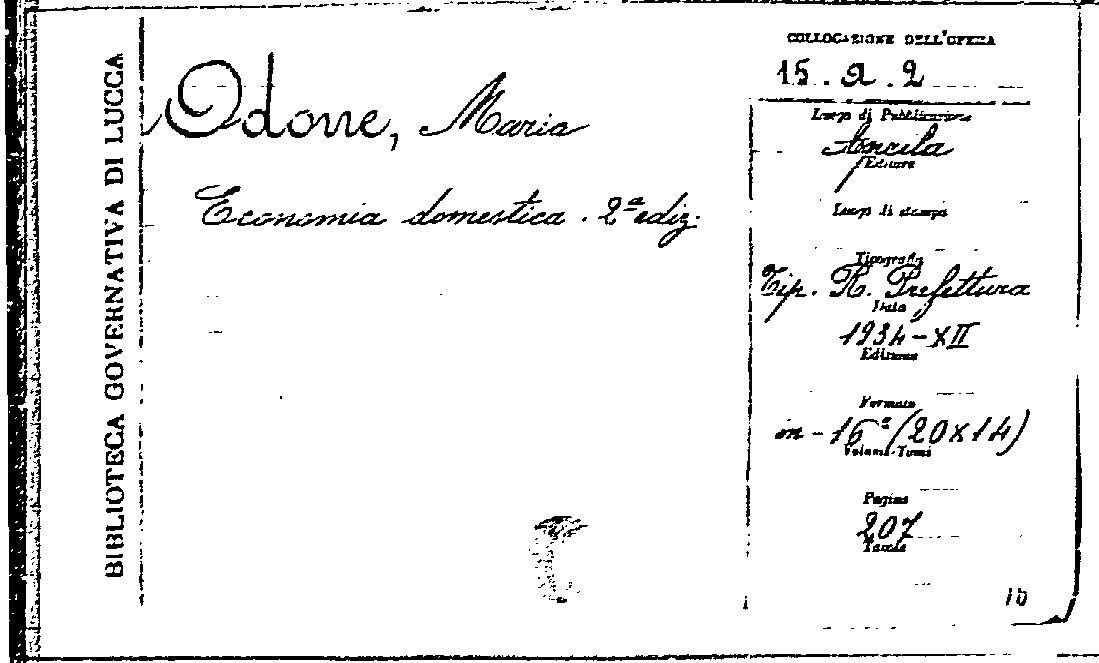 BIBLIOTECA GOVERNATIVA DI LUCCA
Odone, Maria
Economia domestica. 2ª ediz.
COLLOCAZIONE DELL'OPERA
15. a. 2
Luogo di Pubblicazione
Editore
Luogo di stampa
Tipografia
Tip. R. Prefettura
Data
1934-XII
Edizione
Formato
in-16° (20x14)
Volumi-Tomi
Pagine
207
Tavole